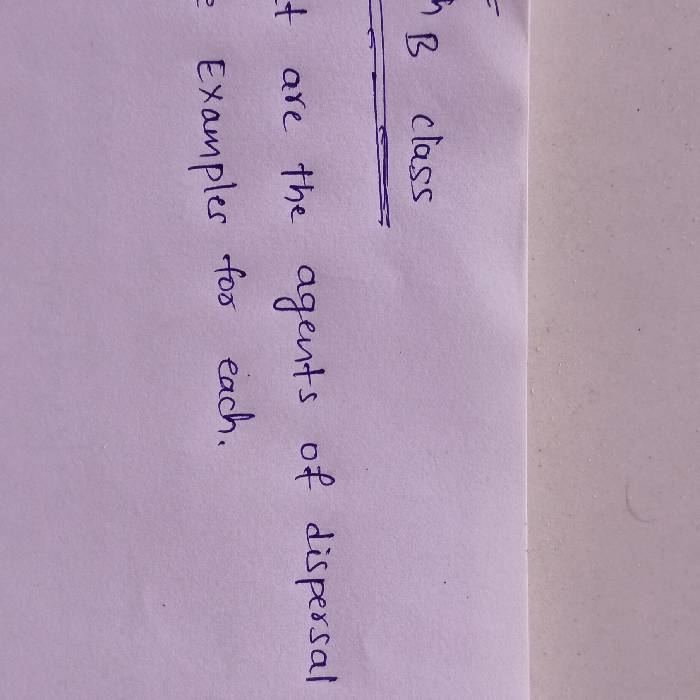 h B class
t are the agents of dispersal
e Examples for each.